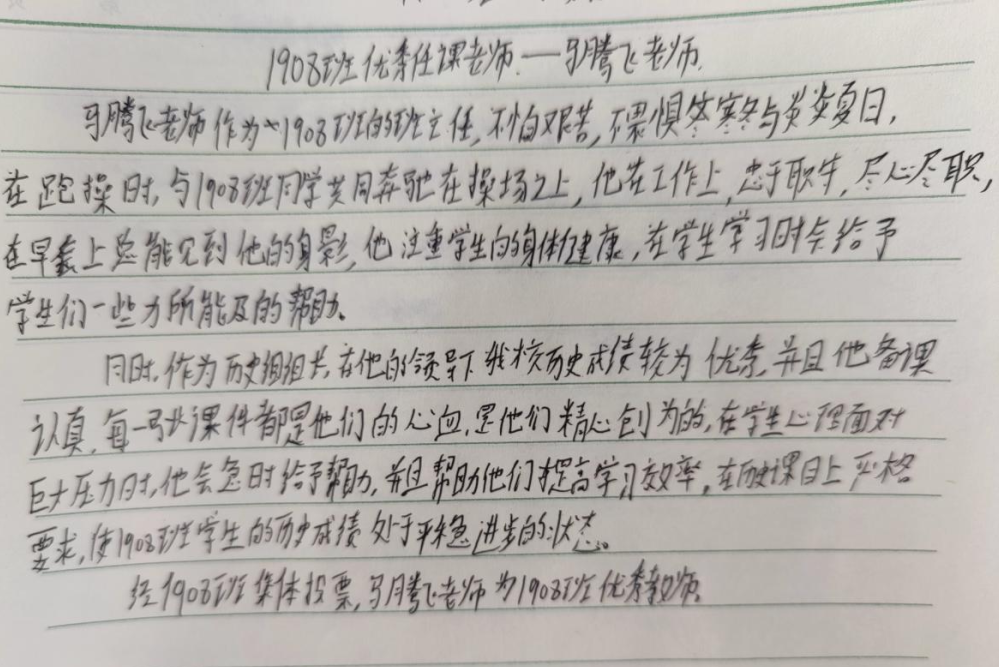 1908班优秀任课老师.——马腾飞老师.
马腾飞老师作为1908班的班主任,不怕艰苦,不畏惧冬寒冬与炎炎夏日,
在跑操时,与1908班同学共同奔驰在操场之上,他在工作上,忠于职守,尽心尽职,
在早上总能见到他的身影,他注重学生的身体健康,在学生学习时会给予
学生们一些力所能及的帮助。
同时,作为历史组组长,在他的领导下我校历史成绩较为优秀,并且他备课
认真,每一张课件都是他们的心血,是他们精心创为的,在学生心理面对
巨大压力时,他会急时给予帮助,并且帮助他们提高学习效率,在历史课目上严格
要求,使1908班学生的历史成绩处于平稳进步的状态。
经1908班集体投票,马腾飞老师为1908班优秀教师.